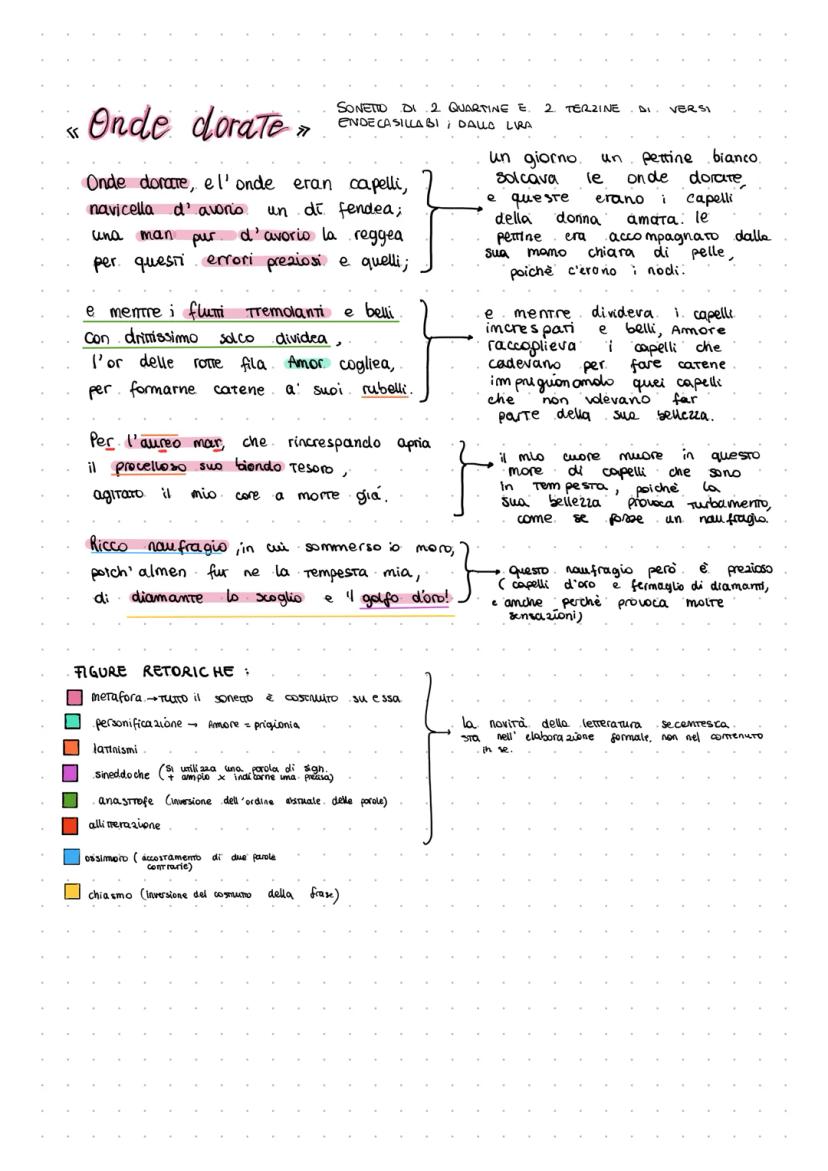 « Onde dorate »
SONETTO DI 2 QUARTINE E 2 TERZINE DI VERSI
ENDECASILLABI ; DALLA LIRA
Onde dorate, e l'onde eran capelli,
navicella d'avorio un dì fendea;
una man pur d'avorio la reggea
per questi errori preziosi e quelli;
un giorno un pettine bianco
solcava le onde dorate,
e queste erano i capelli
della donna amata. le
pettine era accompagnato dalla
sua mano chiara di pelle,
poichè c'erano i nodi.
e mentre i flutti tremolanti e belli
con drittissimo solco dividea,
l'or delle rotte fila Amor cogliea,
per formarne catene a' suoi rubelli.
e mentre divideva i capelli
increspati e belli, Amore
raccoglieva i capelli che
cadevano per fare catene
imprigionando quei capelli
che non volevano far
parte della sua bellezza.
Per l'aureo mar, che rincrespando apria
il procelloso suo biondo tesoro,
agitato il mio core a morte già.
il mio cuore muore in questo
mare di capelli che sono
in tempesta, poichè la
sua bellezza provoca turbamento,
come se fosse un naufragio.
Ricco naufragio, in cui sommerso io moro,
poich'almen fur ne la tempesta mia,
di diamante lo scoglio e 'l golfo d'oro!
questo naufragio però è prezioso
(capelli d'oro e fermaglio di diamanti,
e anche perchè provoca molte
sensazioni)
FIGURE RETORICHE :
metafora → tutto il sonetto è costruito su essa
personificazione → Amore = prigionia
latinismi
sineddoche (si utilizza una parola di sign.
+ ampio x indicarne una precisa)
anastrofe (inversione dell'ordine abituale delle parole)
allitterazione
ossimoro ( accostamento di due parole
contrarie)
chiasmo (inversione del costrutto della frase)
la novità della letteratura secentesca
sta nell'elaborazione formale, non nel contenuto
in se.